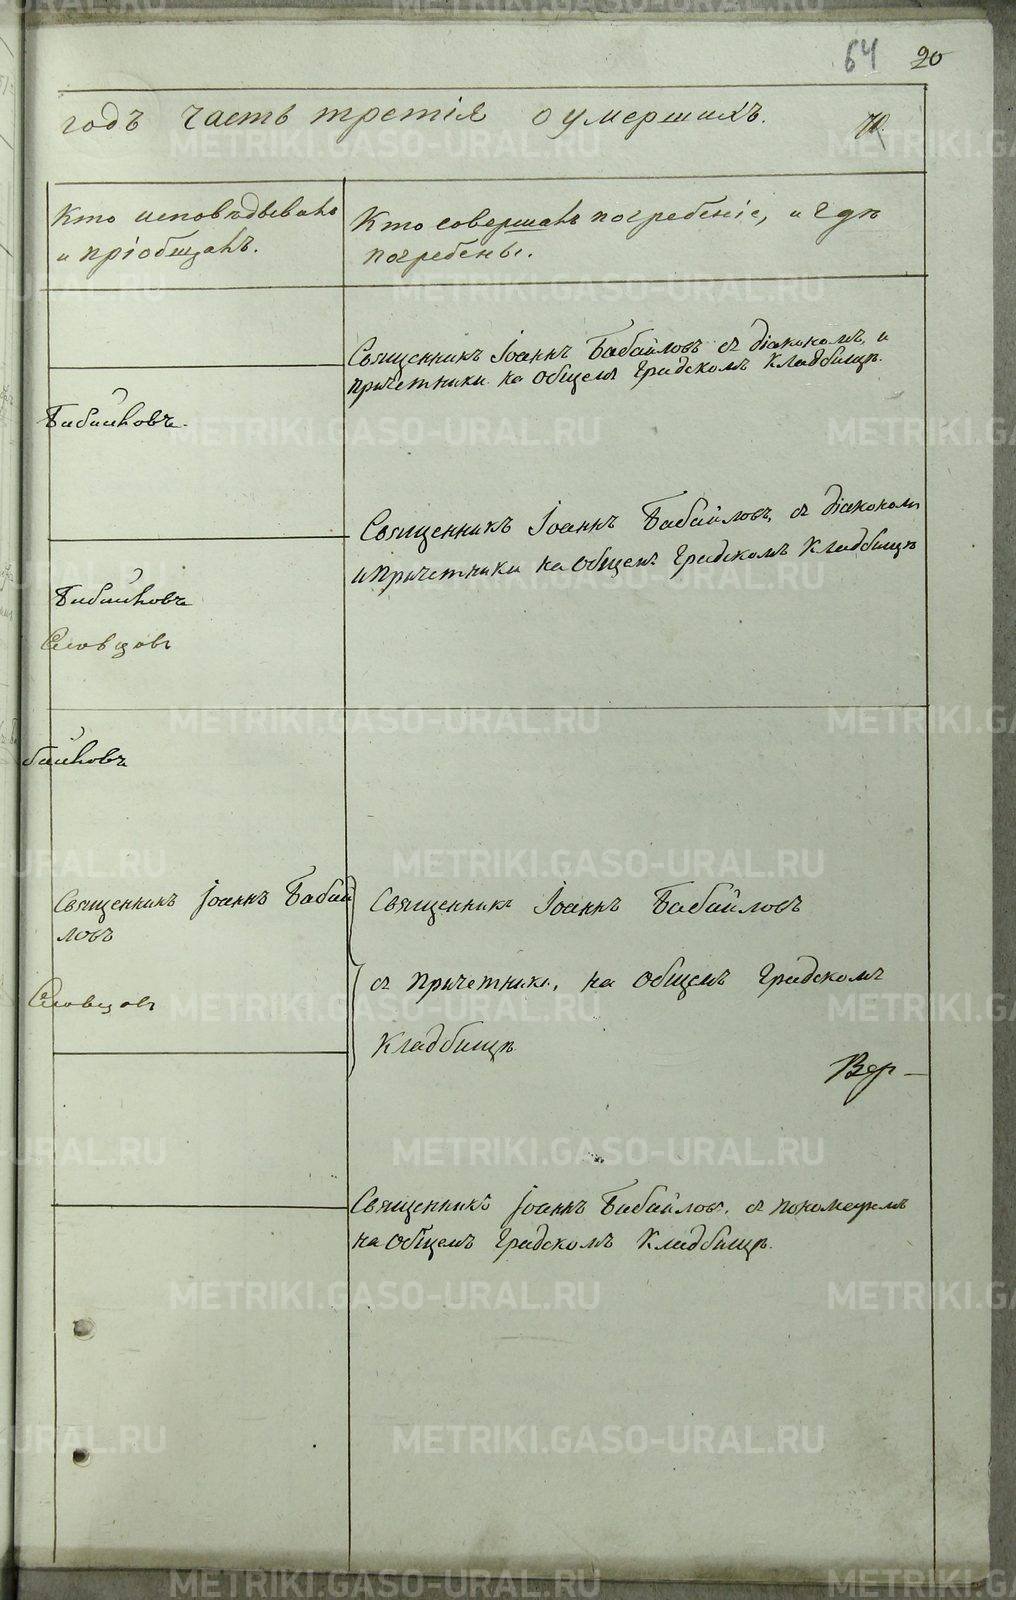 64 20
годъ часть третія о умершихъ.
Кто исповѣдывалъ
и пріобщалъ.
Кто совершалъ погребеніе, и гдѣ
погребены.
Священникъ Іоаннъ Бабайловъ съ діакономъ, и
причетники на общемъ градскомъ кладбищѣ.
Священникъ Іоаннъ Бабайловъ, съ діакономъ
и причетники на общемъ градскомъ кладбищѣ
Словцовъ
Священникъ Іоаннъ Бабай
ловъ
Словцовъ
Священникъ Іоаннъ Бабайловъ
съ причетники, на общемъ градскомъ
кладбищѣ
Вер-
Священникъ Іоаннъ Бабайловъ, съ пономаремъ
на общемъ градскомъ кладбищѣ.
METRIKI.GASO-URAL.RU